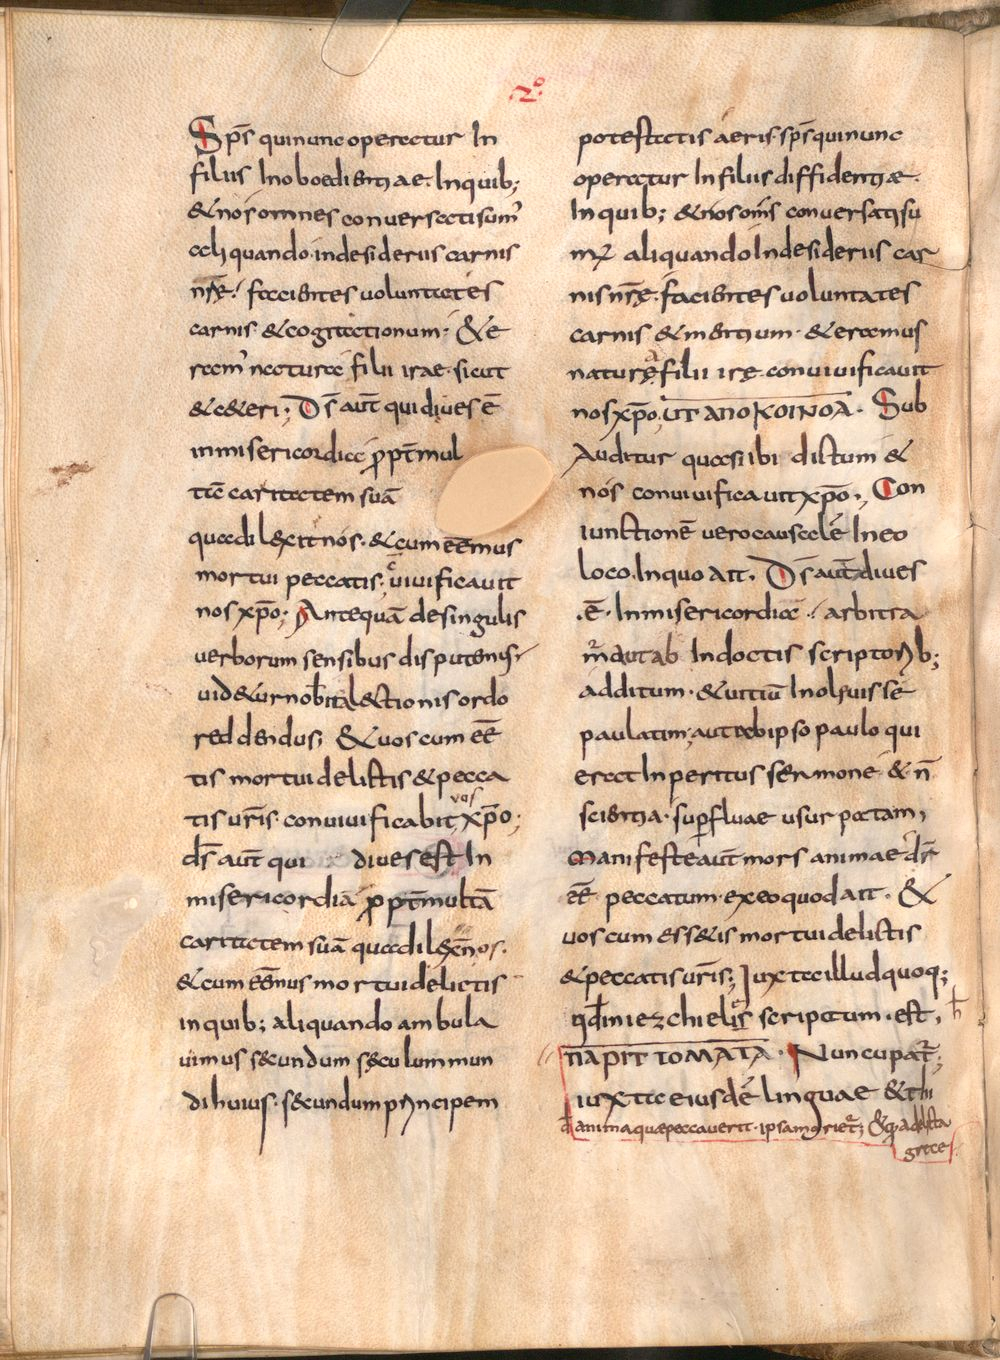 2º
Sp̄s qui nunc operatur In
filiis Inoboedientiae. Inquib;
& nos omnes conversati sum᾽
aliquando indesideriis carnis
nr̄ę. facientes voluntates
carnis & cogitationum. & e
ram᾽ natura filii irae. sicut
& c&eri; Ds̄ aut̄ qui dives ē
in misericordia ꝓpt̄ mul
tā caritatem suā
qua dilexit nos. & cum eēmus
mortui peccatis; vivificavit
nos xp̄o; Antequā desingulis
verborum sensibus disputemus.
vid&ur nob̄ Ital&ionis ordo
reddendus; & vos cum eē
tis mortui delictis & pecca
tis vr̄is. convivificabit vos xp̄o;
ds̄ aut̄ qui dives est In
misericordiā ꝓpt̄ multā
caritatem suā qua dilex̄ nos.
& cum eēmus mortui delictis
in quib; aliquando ambula
vimus s&cundum sęculum mun
di huius. s&cundum principem
potestatis aeris. sp̄s qui nunc
operatur In filiis diffidentię.
In quib; & nos om̄s conversati su
mꝰ aliquando Indesideriis car
nis nr̄ę. facientes voluntates
carnis & mentium. & eramus
naturę filii irę. convivificavit
nos xp̄o, UT ΑΠΟ ΚΟΙΝΟΑ. Sub
Auditur quasi ibi dictum &
nos convivificavit xp̄o; Con
iunctionē vero causalē In eo
loco. In quo ait. Ds̄ aut̄ dives
.ē. In misericordia. arbitra
mr̄ aut ab Indoctis scriptorib;
additum. & vitiū Inolevisse
paulatim; aut ab ipso paulo qui
erat Inperitus sermone & n̄
scientia. suꝑfluae usurpatam,
Manifeste aut̄ mors animae dr̄
eē peccatum. ex eo quod ait. &
vos cum ess&is mortui delictis
& peccatis vr̄is; Juxta illud quoq;
qd̄ in iezchielis scriptum. est,
ΠΑΡΠΤΤΟΜΑΤΑ. Nuncupat̄;
iuxta eiusdē linguae & thi
anima quę peccaverit. ipsa morię̄t; & ꝓ delicta
grece